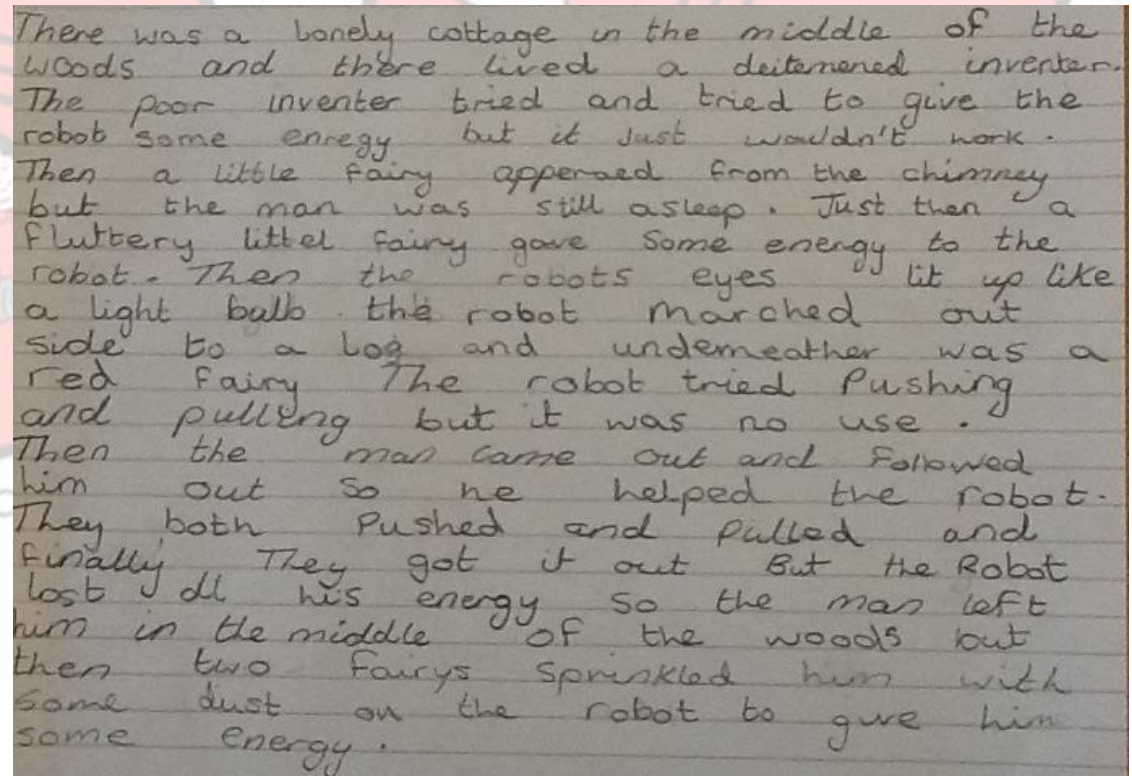 There was a lonely cottage in the middle of the
woods and there lived a deitemened inventer.
The poor inventer tried and tried to give the
robot some enregy but it Just wouldn't work.
Then a little fairy apperaed from the chimney
but the man was still asleep. Just then a
fluttery littel fairy gave some energy to the
robot. Then the robots eyes lit up like
a light bulb the robot marched out
side to a log and underneather was a
red fairy The robot tried Pushing
and pulling but it was no use.
Then the man came out and followed
him out so he helped the robot.
They both Pushed and Pulled and
finally They got it out But the Robot
lost all his energy so the man left
him in the middle of the woods but
then two fairys sprinkled him with
some dust on the robot to give him
some energy.